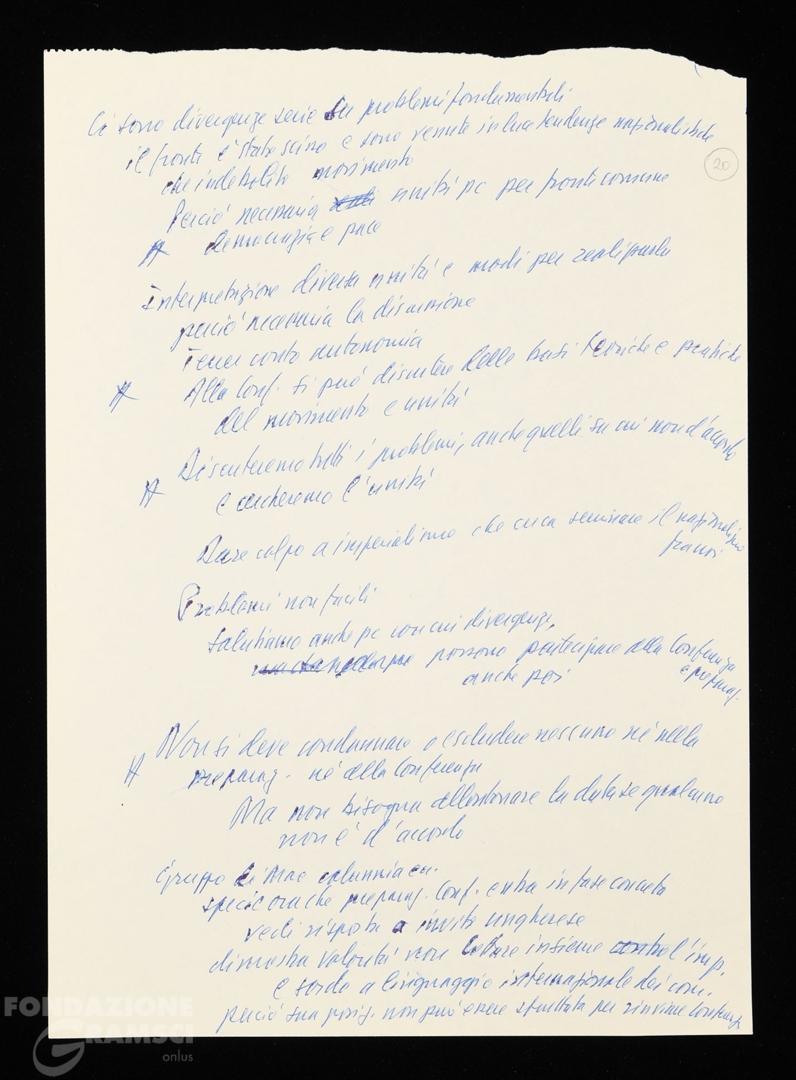 Ci sono divergenze serie su problemi fondamentali
il fronte è stato scisso e sono venute in luce tendenze nazionalistiche
che indebolito movimento
20
Perciò necessaria unità pc per fronte comune
democrazia e pace
Interpretazione diversa unità e modi per realizzarla
perciò necessaria la discussione
Tener conto autonomia
Alla Conf. si può discutere delle basi teoriche e pratiche
del movimento e unità
Discuteremo tutti i problemi, anche quelli su cui non d'accordo
e cercheremo l'unità
Dare colpo a imperialismo che cerca seminare il nazionalismo
fra noi
Problemi non facili
salutiamo anche pc con cui divergenze,
possono partecipare alla Conferenza
anche essi e preparaz.
Non si deve condannare o escludere nessuno né nella
preparaz. né della Conferenza
Ma non bisogna allontanare la data se qualcuno
non è d'accordo
Gruppo di Mao calunnia ecc.
specie ora che preparaz. Conf. entra in fase concreta
vedi risposta a invito ungherese
dimostra volontà non lottare insieme contro l'imp.
e sordo a linguaggio internazionale dei com.
perciò sua posiz. non può essere sfruttata per rinviare Conferenza
FONDAZIONE
GRAMSCI
onlus